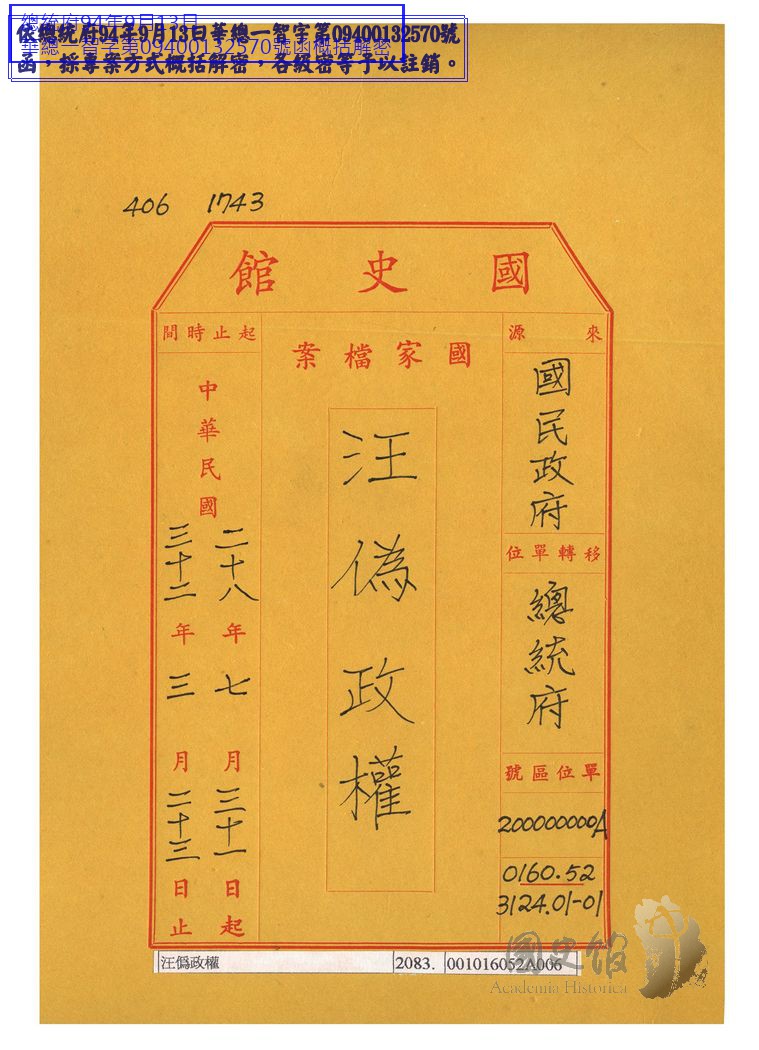 總統府94年9月13日
華總一智字第09400132570號函概括解密
依總統府94年9月13日華總一智字第09400132570號
函，採專案方式概括解密，各級密等予以註銷。
406 1743
國史館
來源
國民政府
移轉單位
總統府
單位區號
200000000A
0160.52
3124.01-01
國家檔案
汪偽政權
起止時間
中華民國
二十八年七月三十一日起
三十二年三月二十三日止
汪僞政權 2083. 001016052A006
國史館
Academia Historica